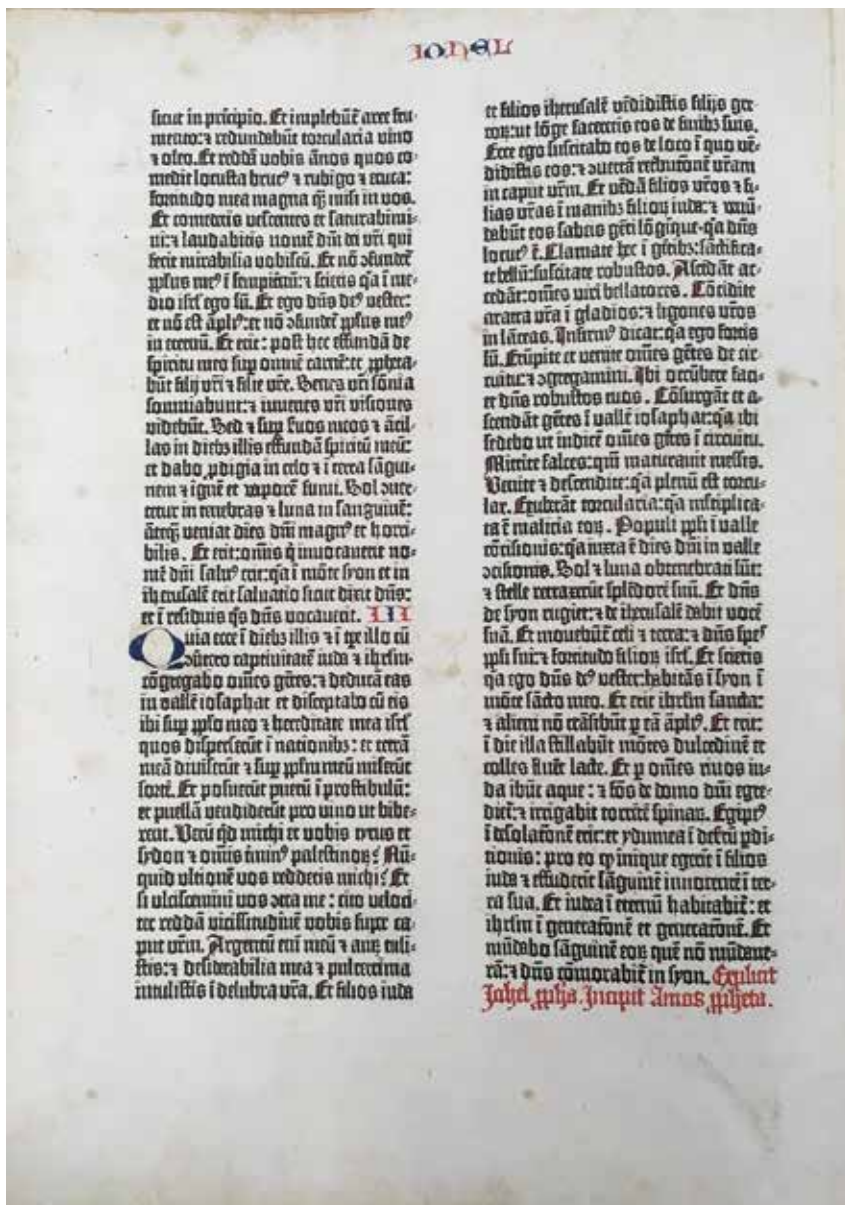 IOHEL
sicut in prĩcipio. Et implebũt̃ aree fru-
mento: ⁊ redundabũt torcularia vino
⁊ oleo. Et reddã vobis ãnos quos co-
medit locusta bruc⁹ ⁊ rubigo ⁊ eruca:
fortitudo mea magna quã misi in vos.
Et comedetis vescentes et saturabimi-
ni: ⁊ laudabitis nomẽ dñi dei vr̃i qui
fecit mirabilia vobiscũ. Et nõ ↄfundet̃
pp̃lus me⁹ ĩ sempiternũ: ⁊ scietis q̃a ĩ me-
dio isrl̃ ego sũ. Et ego dñs de⁹ vester:
et nõ est ãpli⁹: et nõ ↄfundet̃ pp̃lus me⁹
in eternũ. Et erit: post hec effundã de
spiritu meo sup̲ omnẽ carnẽ: et ꝓpheta-
bũt filij vr̃i ⁊ filie vr̃e. Senes vr̃i sõnia
somniabunt: ⁊ iuvenes vr̃i visiones
videbũt. Sed ⁊ sup̲ s̃uos meos ⁊ ãcil-
las in dieb⁊ illis effundã spiritũ meũ:
et dabo ꝓdigia in celo ⁊ ĩ terra sãgui-
nem ⁊ ignẽ et vaporẽ fumi. Sol ↄuer-
tetur in tenebras ⁊ luna in sanguinẽ:
ãteq̃ veniat dies dñi magn⁹ et horri-
bilis. Et erit: omĩs q̃ invocaverit no-
mẽ dñi salv⁹ erit: q̃a ĩ mõte syon et in
iherusalẽ erit salvatio sicut dixit dñs:
et ĩ residuis q̃s dñs vocaverit. III
Quia ecce ĩ dieb⁊ illis ⁊ ĩ tp̃e illo cũ
ↄũtero captivitatẽ iuda ⁊ ihrlm̃:
cõgregabo omẽs gẽtes: ⁊ deducã eas
in vallẽ iosaphat et disceptabo cũ eis
ibi sup̲ pp̃lo meo ⁊ hereditate mea isrl̃
quos disperserũt ĩ nationib⁊: et terrã
meã diviserũt ⁊ sup̲ pp̃lm̃ meũ miserũt
sortẽ. Et posuerũt puerũ ĩ prostibulũ:
et puellã vendiderũt pro vino ut bibe-
rent. Verũ qd̃ michi et vobis tyrus et
sydon ⁊ omĩs t̃min⁹ palestinoꝝ? Nũ-
quid ultionẽ vos reddetis michi? Et
si ulciscemini vos ↄtra me: cito veloci-
ter reddã vicissitudinẽ vobis super ca-
put vr̃m. Argentũ enĩ meũ ⁊ auꝝ tuli-
stis: ⁊ desiderabilia mea ⁊ pulcerrima
intulistis ĩ delubra vr̃a. Et filios iuda
et filios iherusalẽ vẽdidistis filijs gre-
coꝝ: ut lõge faceretis eos de finib⁊ suis.
Ecce ego suscitabo eos de loco ĩ quo vẽ-
didistis eos: ⁊ ↄuertã retributõnẽ vr̃am
in caput vr̃m. Et vẽdã filios vr̃os ⁊ fi-
lias vr̃as ĩ manib⁊ filioꝝ iuda: ⁊ venũ-
dabũt eos sabeis gẽti lõginque: q̃a dñs
locut⁹ ẽ. Clamate hec ĩ gẽtib⁊: sãctifica-
te bellũ: suscitate robustos. Ascẽdãt ac-
cedãt: omẽs viri bellatores. Cõcidite
aratra vr̃a ĩ gladios: ⁊ ligones vr̃os
in lãceas. Infirm⁹ dicat: q̃a ego fortis
sũ. Erũpite et venite omẽs gẽtes de cir-
cuitu: ⁊ ↄgregamini. Ibi occũbere faci-
et dñs robustos tuos. Cõsurgãt et a-
scendãt gẽtes ĩ vallẽ iosaphat: q̃a ibi
sedebo ut iudicẽ omẽs gẽtes ĩ circuitu.
Mittite falces: qm̃ maturavit messis.
Venite ⁊ descendite: q̃a plenũ est torcu-
lar. Exuberãt torcularia: q̃a m̃ltiplica-
ta ẽ malicia eoꝝ. Populi pp̃li ĩ valle
cõcisionis: q̃a iuxta ẽ dies dñi in valle
ↄcisionis. Sol ⁊ luna obtenebrati sũt:
⁊ stelle retraxerũt splẽdorẽ suũ. Et dñs
de syon rugiet: ⁊ de iherusalẽ dabit vocẽ
suã. Et movebũt̃ celi ⁊ terra: ⁊ dñs spes
pp̃li sui: ⁊ fortitudo filioꝝ isrl̃. Et scietis
q̃a ego dñs de⁹ vester: habitãs ĩ syon ĩ
mõte sãcto meo. Et erit ihrlm̃ sancta:
⁊ alieni nõ trãsibũt p̲ eã ãpli⁹. Et erit:
ĩ die illa stillabũt mõtes dulcedinẽ et
colles fluẽt lacte. Et p̲ omẽs rivos iu-
da ibũt aque: ⁊ fõs de domo dñi egre-
diet̃: ⁊ irrigabit torrẽtẽ spinaꝝ. Egipt⁹
ĩ desolatõnẽ erit: et ydumea ĩ desertũ p̲di-
tionis: pro eo ꝙ inique egerĩt ĩ filios
iuda ⁊ effuderĩt sãguinẽ innocentẽ ĩ ter-
ra sua. Et iudea ĩ eternũ habitabit̃: et
ihrlm̃ ĩ generatõnẽ et generatõnẽ. Et
mũdabo sãguinẽ eoꝝ quẽ nõ mũdave-
rã: ⁊ dñs cõmorabit̃ in syon. Explicit
Johel ꝓph̃a. Incipit Amos ꝓpheta.